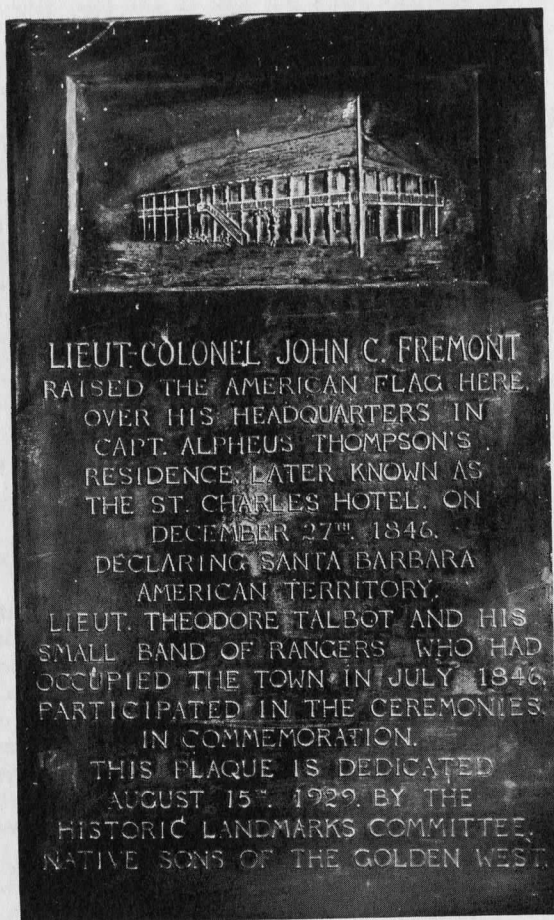 LIEUT-COLONEL JOHN C. FREMONT
RAISED THE AMERICAN FLAG HERE,
OVER HIS HEADQUARTERS IN
CAPT. ALPHEUS THOMPSON'S
RESIDENCE, LATER KNOWN AS
THE ST. CHARLES HOTEL. ON
DECEMBER 27TH. 1846.
DECLARING SANTA BARBARA
AMERICAN TERRITORY.
LIEUT. THEODORE TALBOT AND HIS
SMALL BAND OF RANGERS WHO HAD
OCCUPIED THE TOWN IN JULY 1846,
PARTICIPATED IN THE CEREMONIES.
IN COMMEMORATION.
THIS PLAQUE IS DEDICATED
AUGUST 15TH. 1929. BY THE
HISTORIC LANDMARKS COMMITTEE,
NATIVE SONS OF THE GOLDEN WEST.